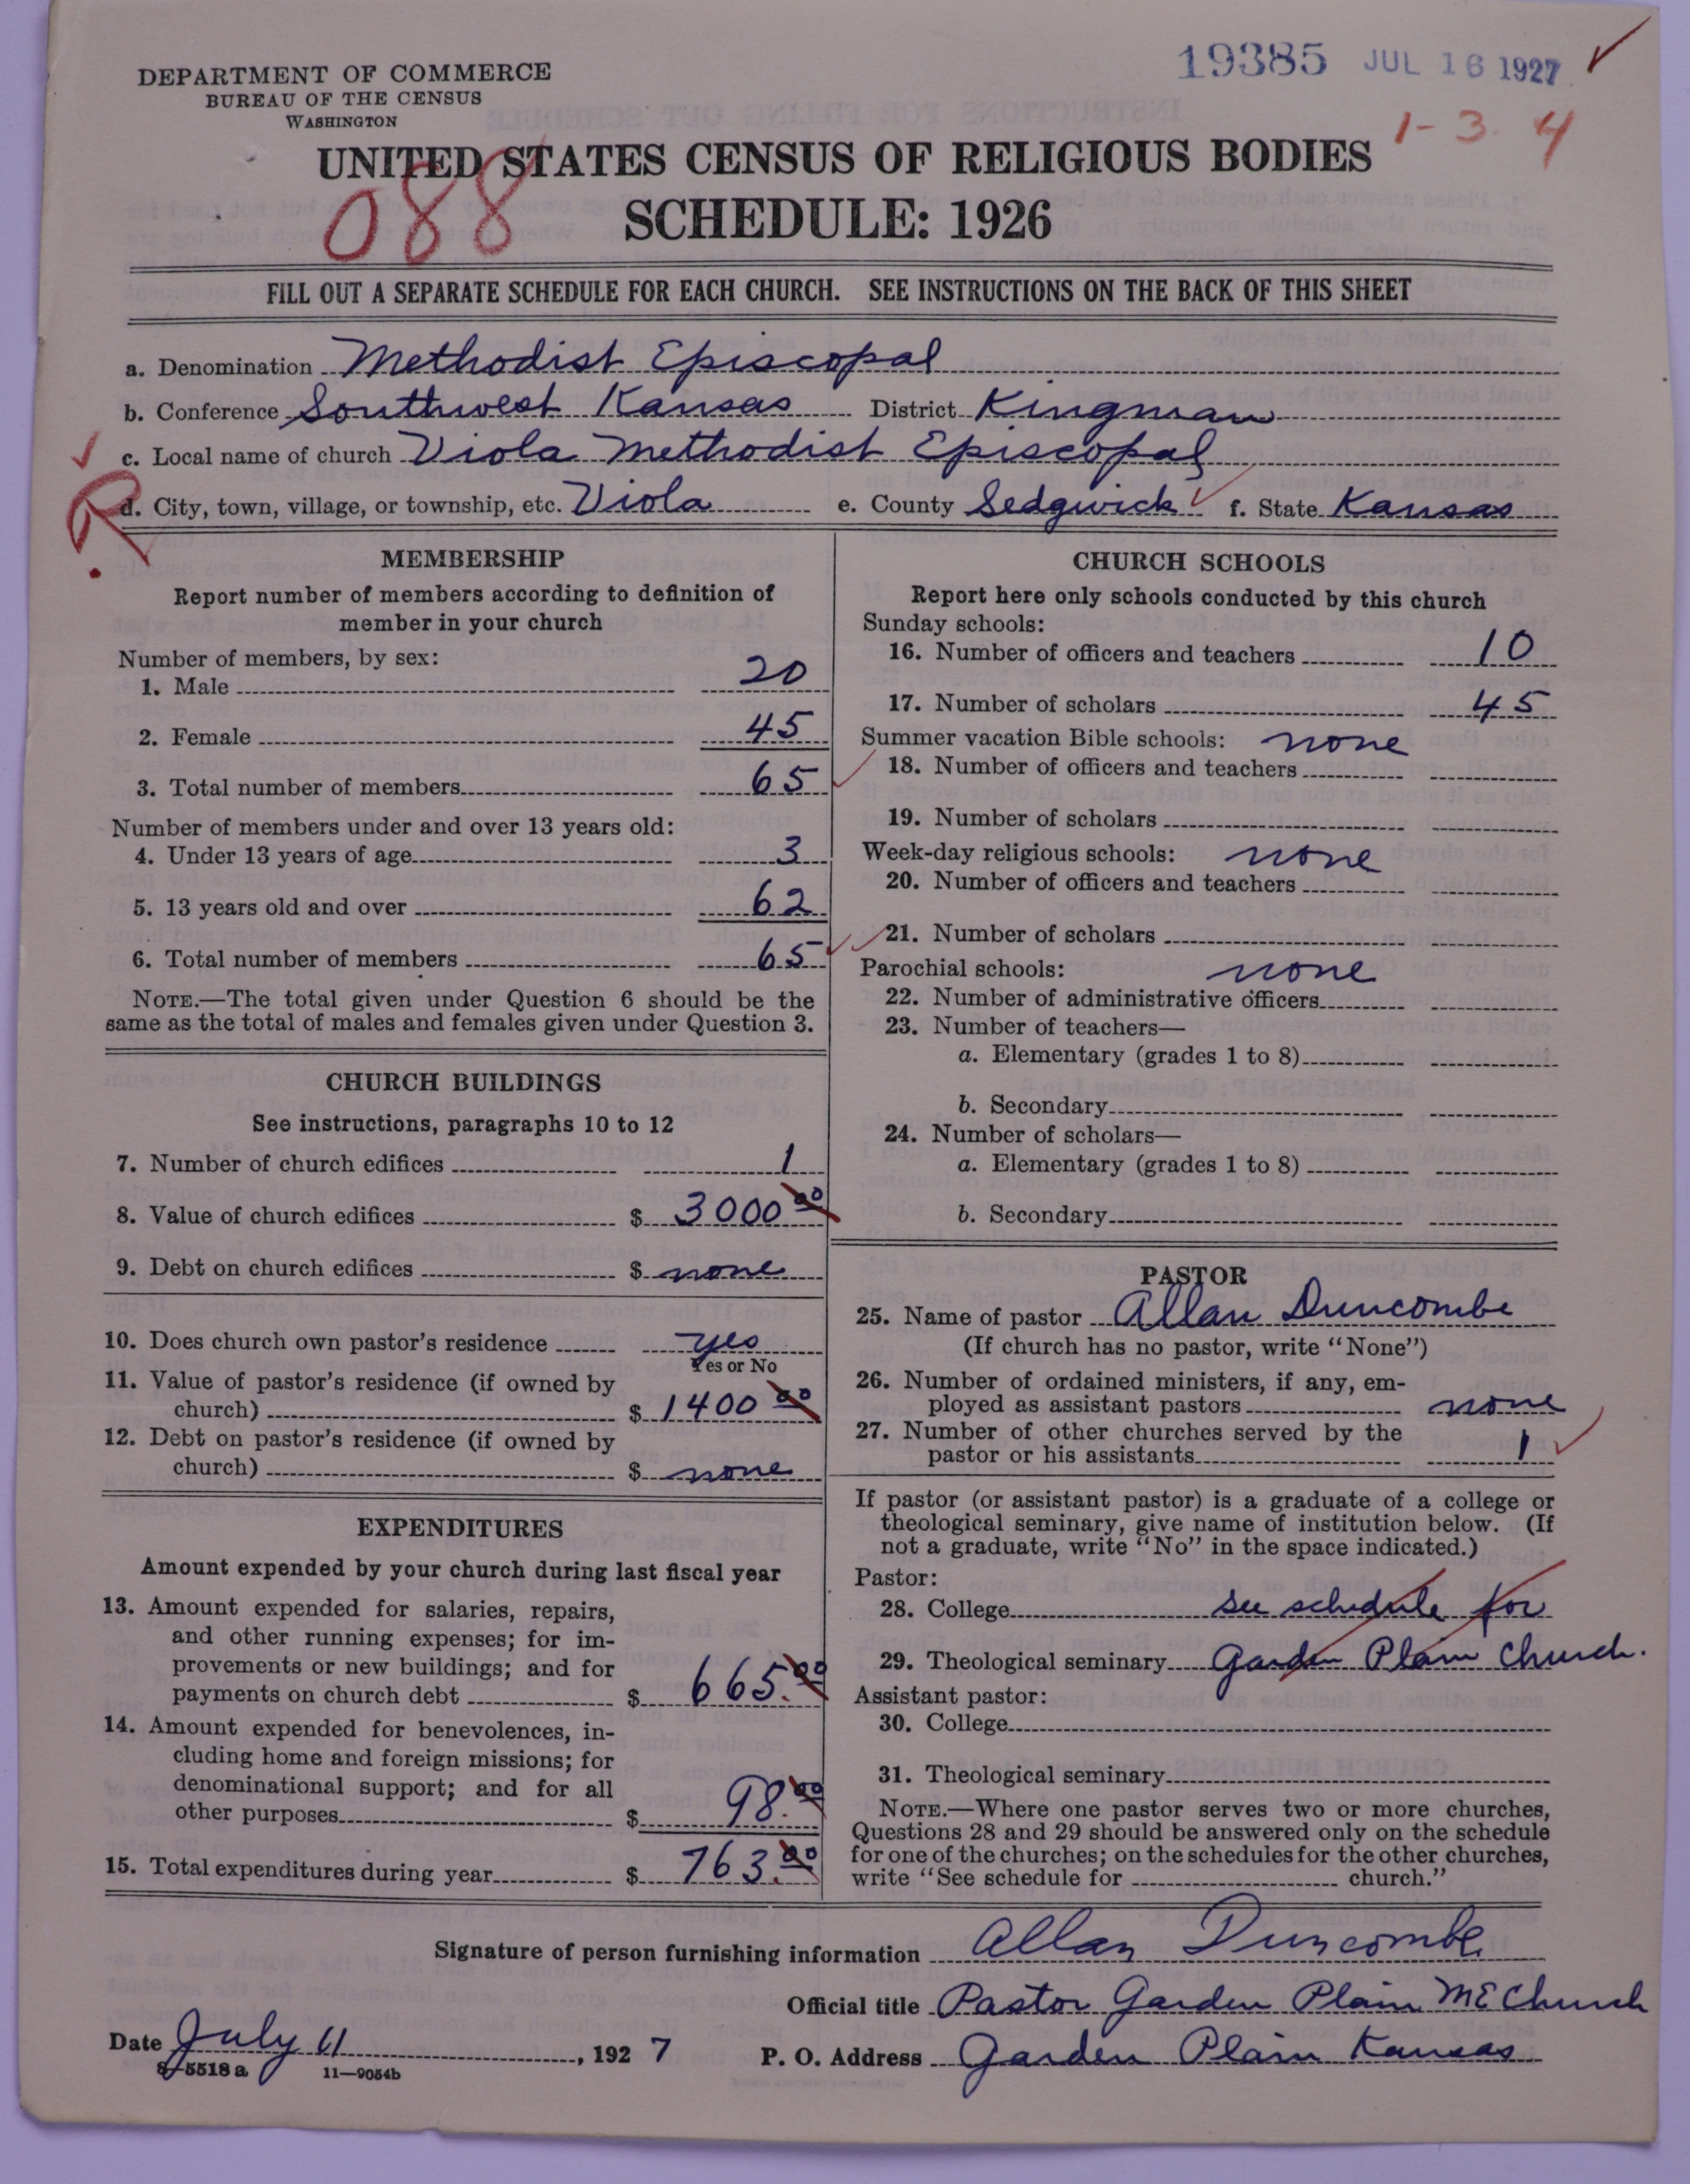 19385 JUL 16 1927 ✓
DEPARTMENT OF COMMERCE
BUREAU OF THE CENSUS
WASHINGTON
1-3. 4
UNITED STATES CENSUS OF RELIGIOUS BODIES
088
SCHEDULE: 1926
FILL OUT A SEPARATE SCHEDULE FOR EACH CHURCH. SEE INSTRUCTIONS ON THE BACK OF THIS SHEET
a. Denomination Methodist Episcopal
b. Conference Southwest Kansas District Kingman
c. Local name of church Viola Methodist Episcopal
R
d. City, town, village, or township, etc. Viola e. County Sedgwick f. State Kansas
MEMBERSHIP
Report number of members according to definition of
member in your church
Number of members, by sex:
1. Male 20
2. Female 45
3. Total number of members 65
Number of members under and over 13 years old:
4. Under 13 years of age 3
5. 13 years old and over 62
6. Total number of members 65
NOTE.—The total given under Question 6 should be the
same as the total of males and females given under Question 3.
CHURCH BUILDINGS
See instructions, paragraphs 10 to 12
7. Number of church edifices 1
8. Value of church edifices $ 3000 00
9. Debt on church edifices $ none
10. Does church own pastor's residence yes
Yes or No
11. Value of pastor's residence (if owned by
church) $ 1400 00
12. Debt on pastor's residence (if owned by
church) $ none
EXPENDITURES
Amount expended by your church during last fiscal year
13. Amount expended for salaries, repairs,
and other running expenses; for im-
provements or new buildings; and for
payments on church debt $ 665.00
14. Amount expended for benevolences, in-
cluding home and foreign missions; for
denominational support; and for all
other purposes $ 98.00
15. Total expenditures during year $ 763.00
CHURCH SCHOOLS
Report here only schools conducted by this church
Sunday schools:
16. Number of officers and teachers 10
17. Number of scholars 45
Summer vacation Bible schools: none
18. Number of officers and teachers
19. Number of scholars
Week-day religious schools: none
20. Number of officers and teachers
21. Number of scholars
Parochial schools: none
22. Number of administrative officers
23. Number of teachers—
a. Elementary (grades 1 to 8)
b. Secondary
24. Number of scholars—
a. Elementary (grades 1 to 8)
b. Secondary
PASTOR
25. Name of pastor Allan Duncombe
(If church has no pastor, write "None")
26. Number of ordained ministers, if any, em-
ployed as assistant pastors none
27. Number of other churches served by the
pastor or his assistants 1
If pastor (or assistant pastor) is a graduate of a college or
theological seminary, give name of institution below. (If
not a graduate, write "No" in the space indicated.)
Pastor:
28. College See schedule for
29. Theological seminary Garden Plain Church.
Assistant pastor:
30. College
31. Theological seminary
NOTE.—Where one pastor serves two or more churches,
Questions 28 and 29 should be answered only on the schedule
for one of the churches; on the schedules for the other churches,
write "See schedule for church."
Signature of person furnishing information Allan Duncombe
Official title Pastor Garden Plain ME Church
Date July 11, 1927 P. O. Address Garden Plain Kansas
8-5518 a 11—9054b